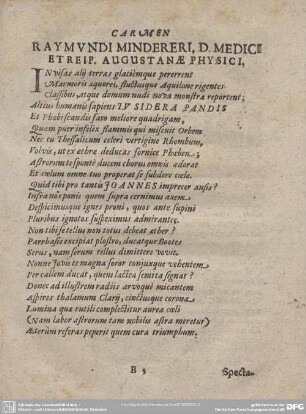 CARMEN
RAYMVNDI MINDERERI, D. MEDICI
ET REIP. AUGUSTANÆ PHYSICI,
INvisas alij terras glaciemque pererrent
Marmoris aquorei, fluctusque Aquilone rigentes
Classibus, atque domum nudi nova monstra reportent;
Altius humanis sapiens TV SIDERA PANDIS
Et Phœbi scandis faro meliore quadrigam,
Quam puer infelix flammis qui miscuit Orbem
Nec tu Thessalicum celeri vertigine Rhombum,
Volvis, ut ex æthre deducas fornice Phœben;
Astrorum te sponte ducem chorus omnis adorat
Et cœlum omne tuo properat se subdere cœlo.
Quid tibi pro tantis JOANNES imprecer ausis?
Infra nos ponis quem supra cernimus axem
Despicimusque ignes proni, quos ante supini
Pluribus ignotos suspeximus admirantes.
Non tibi se tellus non totus debeat æther?
Parrhasis excipiat plostro, ducatque Bootes
Serus, nam serum tellus dimittere vovit.
Nonne Jovis te magna soror conjuxque vehentem
Per callem ducat, quem lactea semita signat?
Donec ad illustrem radiis arvoque micantem
Aspires thalamum Clarij, cinctusque corona
Lumina qua rutili complectitur aurea cœli
(Nam labor astrorum tam nobilis astra meretur)
Æterùm referas peperit quem cura triumphum.
B 3
Specta-